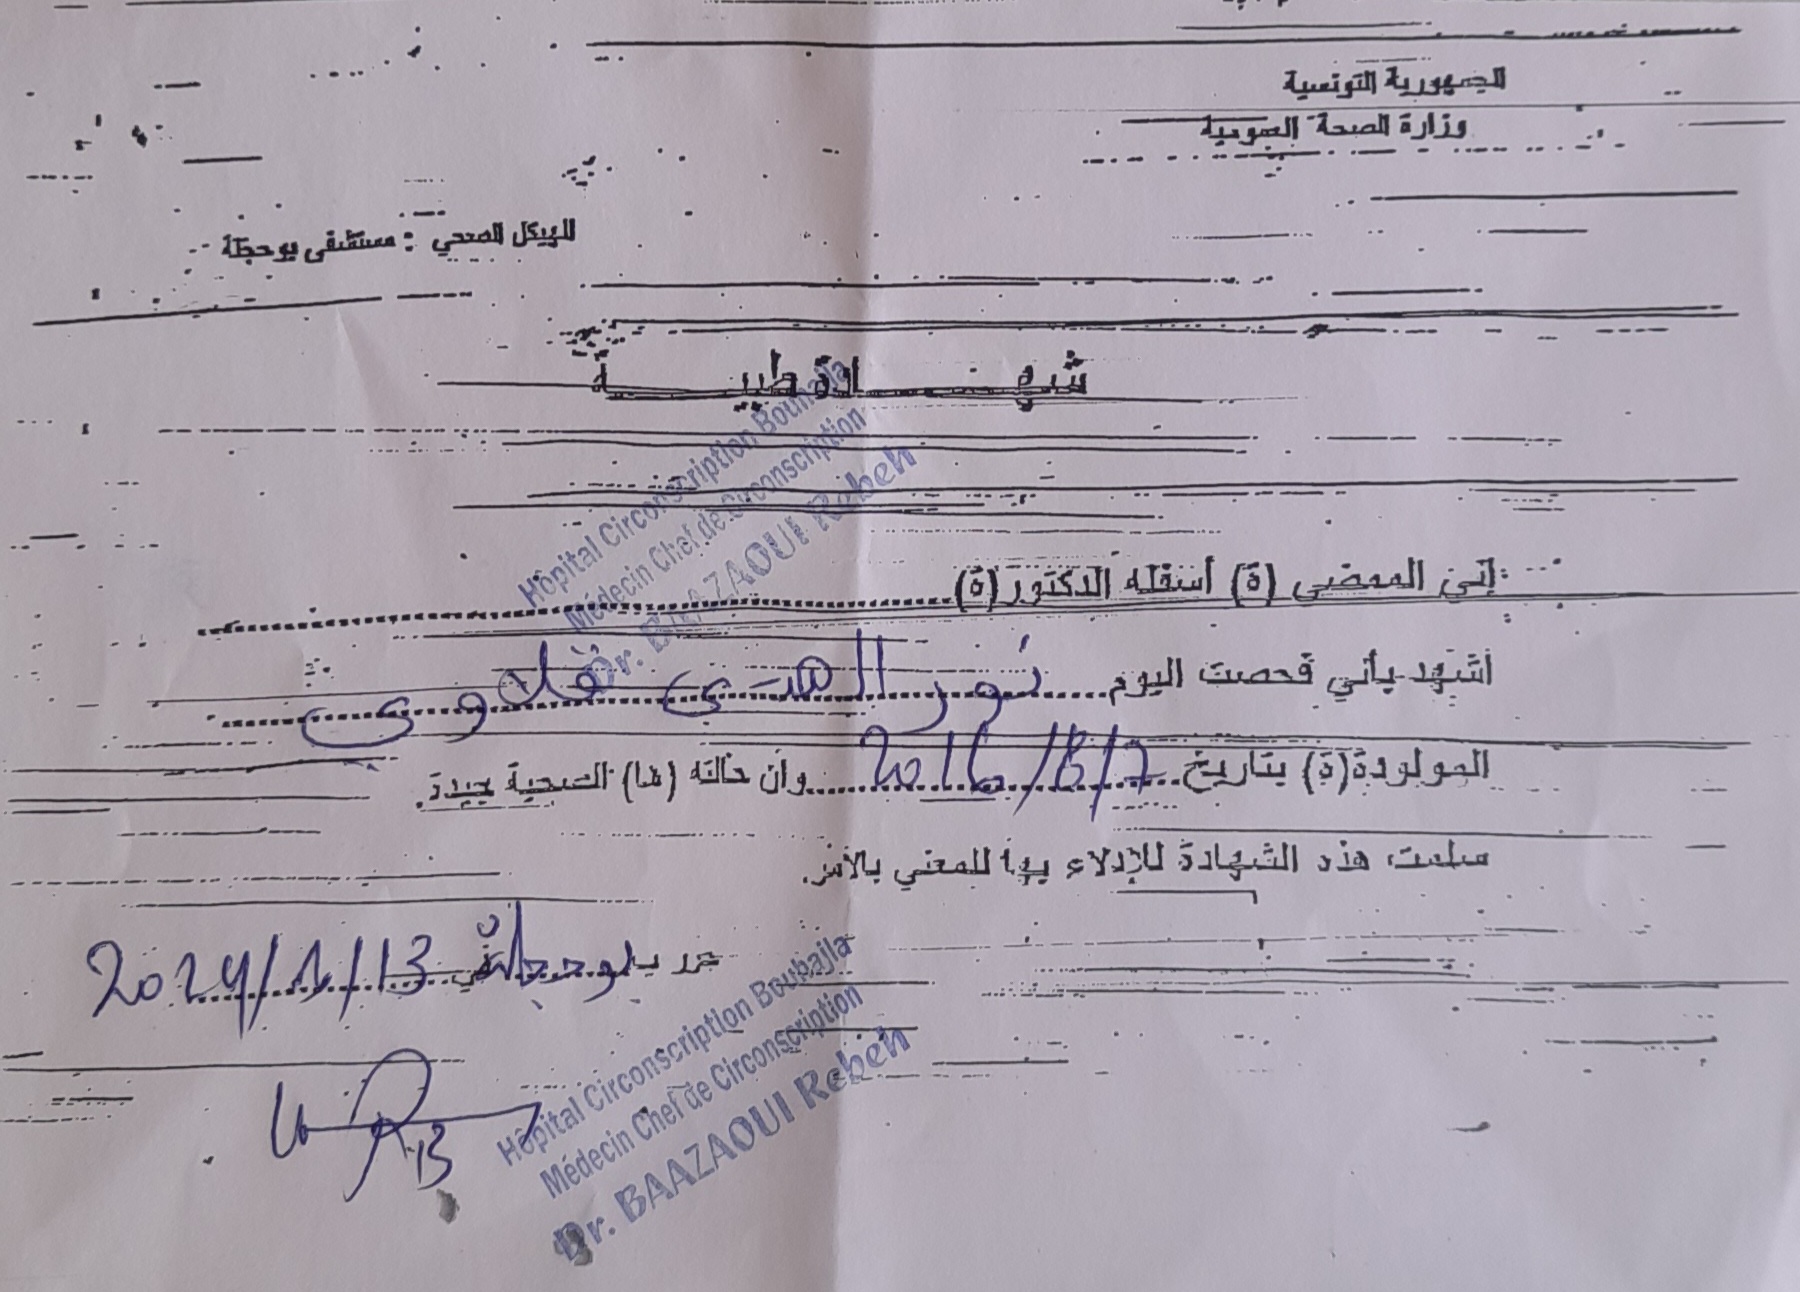 الجمهورية التونسية
وزارة الصحة العمومية
الهيكل الصحي : مستشفى بوحجلة
شهادة طبية
Hôpital Circonscription Bouhajla
Médecin Chef de Circonscription
Dr. BAAZAOUI Rebeh
إني الممضي (ة) أسفله الدكتور (ة)
أشهد بأني فحصت اليوم نور الهدى
المولودة(ة) بتاريخ 2016/8/7 وأن حالته (ها) الصحية جيدة.
سلمت هذه الشهادة للإدلاء بها للمعني بالأمر.
حرر ببوحجلة في 2024/1/13
Hôpital Circonscription Bouhajla
Médecin Chef de Circonscription
Dr. BAAZAOUI Rebeh